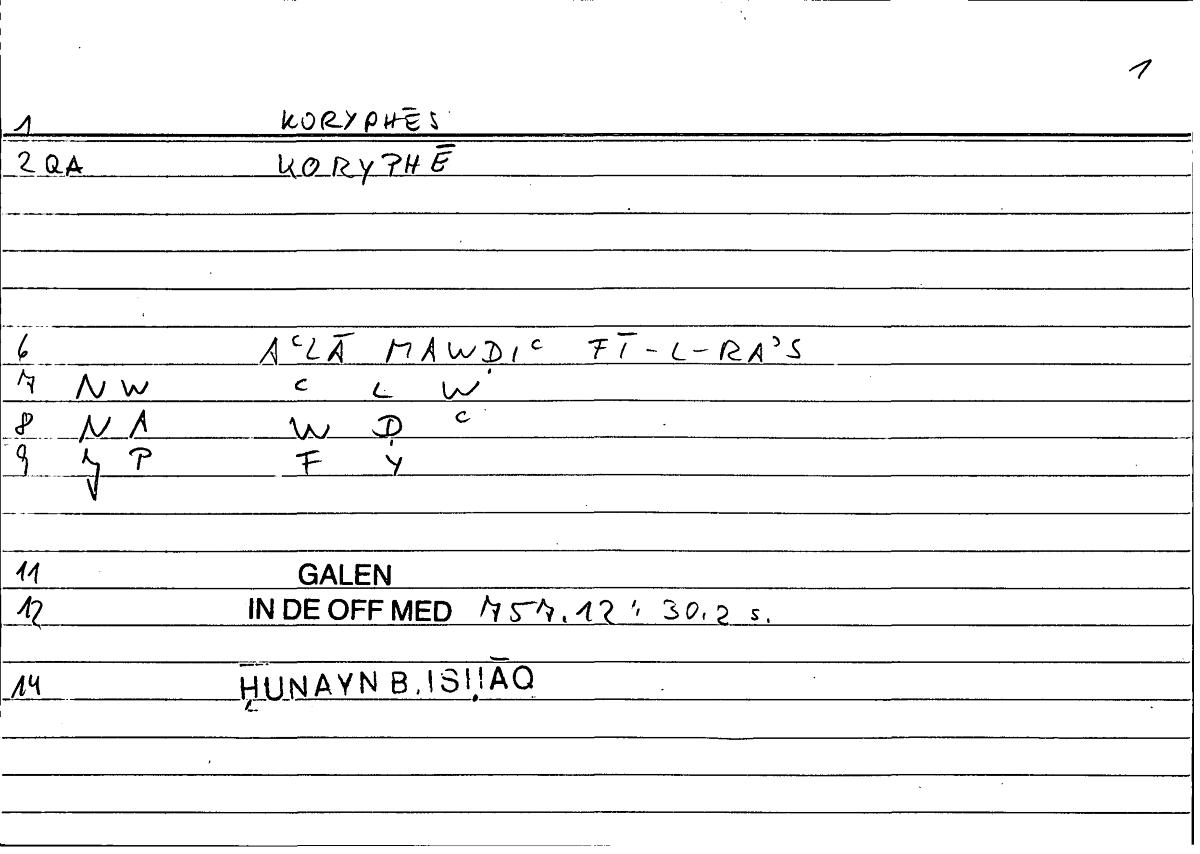 1
1 KORYPHĒS
2 QA KORYPHĒ
6 AᶜLĀ MAWḌIᶜ FĪ-L-RAʾS
7 NW ᶜ L W
8 NA W Ḍ ᶜ
9 P F Y
11 GALEN
12 IN DE OFF MED 757.12 : 30.2 s.
14 ḤUNAYN B. ISḤĀQ